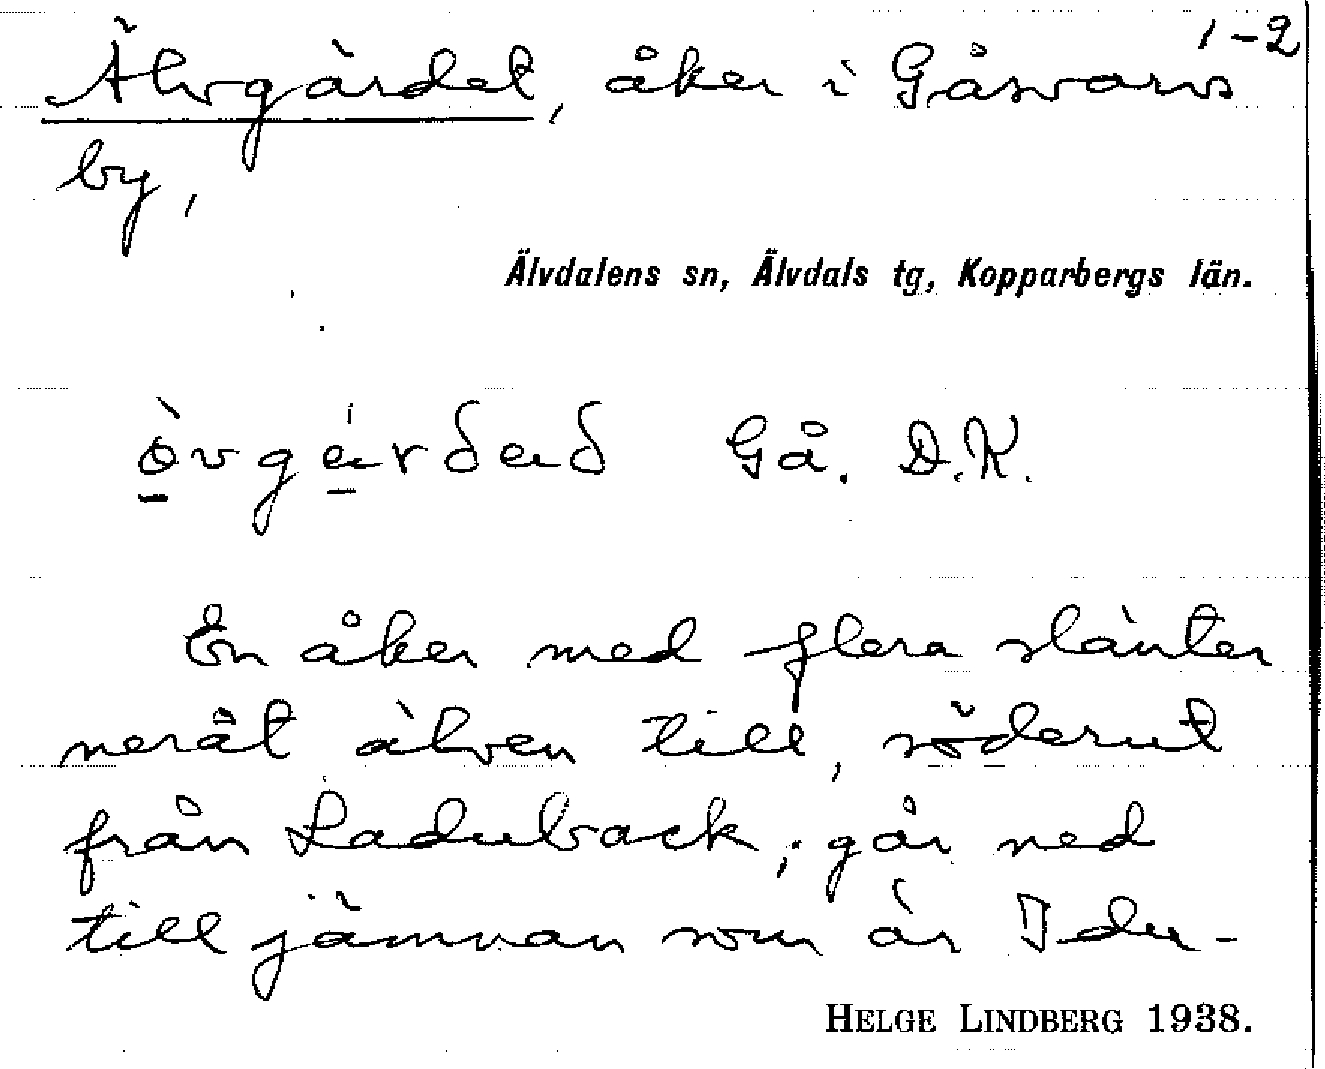 1-2
Älvgärdet, åker i Gåsvarvs
by,
Älvdalens sn, Älvdals tg, Kopparbergs län.
Gå. D.K.
En åker med flera slänter
neråt älven till, söderut
från Laduback; går ned
till jämnan som är Idu-
HELGE LINDBERG 1938.